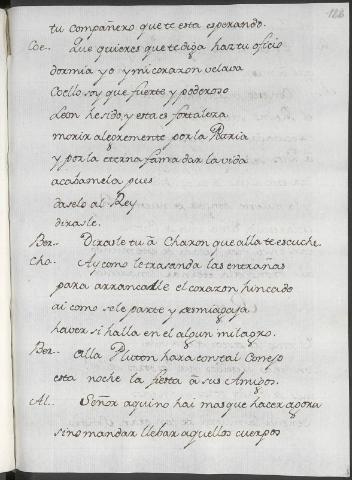 122
tu compañero que te esta esperando.
Coe.. Que quieres que te diga haz tu oficio
dormia yo y mi corazon velava
Coello soy que fuerte y poderoso
Leon he sido, y esta es fortaleza
morir alegremente por la Patria
y por la eterna fama dar la vida
acabamela pues
daselo al Rey
dirasle.
Ber.. Dirasle tu â Charon que alla te escuche.
Cho. Ay como le trasanda las entrañas
para arrancarle el corazon hincado
ai como se le parte y
haver si halla en el algun milagro.
Ber.. alla Pluton hara con tal Conejo
esta noche la fiesta â sus Amigos.
Al.. Señor aqui no hai mas que hacer agora
sino mandar llebar aquellos cuerpos